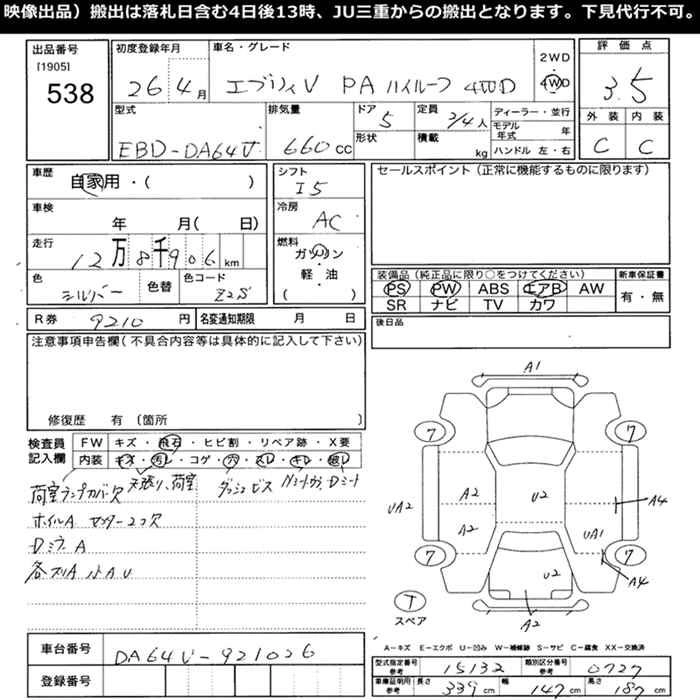 映像出品）搬出は落札日含む4日後13時、JU三重からの搬出となります。下見代行不可。
出品番号
[1905]
538
初度登録年月
26 4月
車名・グレード
エブリィV PA ハイルーフ 4WD
2WD
・
4WD
評価点
3.5
外装 内装
C C
型式
EBD-DA64V
排気量
660cc
ドア
5
形状
定員
2/4人
積載
kg
ディーラー・並行
モデル年式 年
ハンドル 左・右
車歴
自家用・（ ）
車検
年 月（ 日）
走行
12万8千906km
色
シルバー
色替
色コード
Z2S
シフト
I5
冷房
AC
燃料
ガソリン
・
軽・油
（ ）
セールスポイント（正常に機能するものに限ります）
装備品（純正品に限り○をつけてください）
PS PW ABS エアB AW
SR ナビ TV カワ
新車保証書
有・無
R券 9210円
名変通知期限 月 日
後日品
注意事項申告欄（不具合内容等は具体的に記入して下さい）
修復歴 有〔箇所 〕
検査員記入欄
FW キズ・飛石・ヒビ割・リペア跡・X要
内装 キズ・汚レ・コゲ・穴・スレ・キレ・破レ
荷室ランプカバー欠 天張り、荷室 ダッシュビス
ホイルA センター2コ欠
DミラーA
A1
7 7
A2 U2
UA2 A4
A2 UA1
7 7
U2 A4
T
スペア
A2
A－キズ E－エクボ U－凹み W－補修跡 S－サビ C－腐食 XX－交換済
車台番号 DA64V-921026
登録番号
型式指定番号 参考 15132
類別区分番号 参考 0727
車庫証明用 参考 長さ 339cm 幅 147cm 高さ 187cm